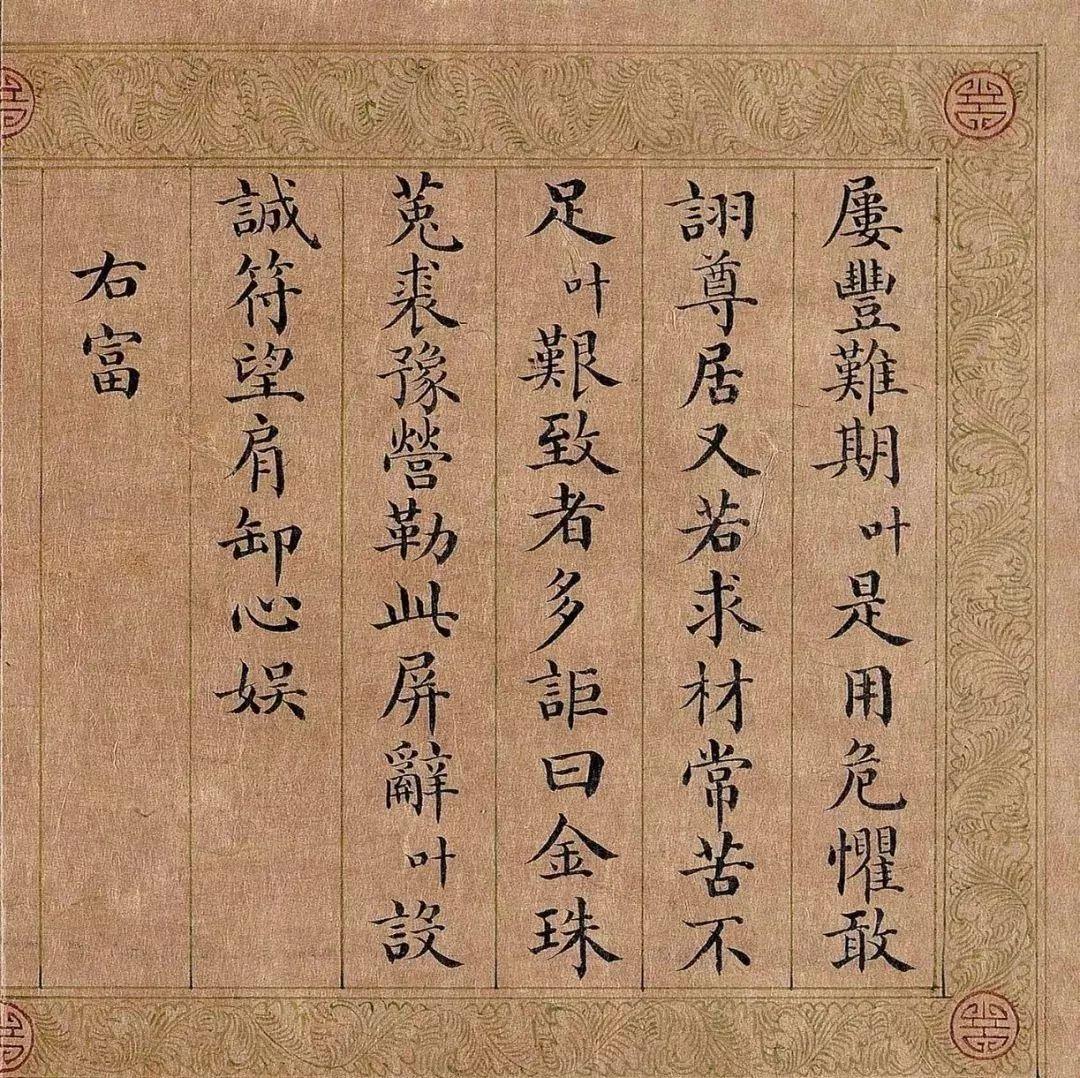 屢豐難期叶是用危懼敢
詡尊居又若求材常苦不
足叶艱致者多詎曰金珠
菟裘豫營勒此屏辭叶設
誠符望肩卸心娱
右富